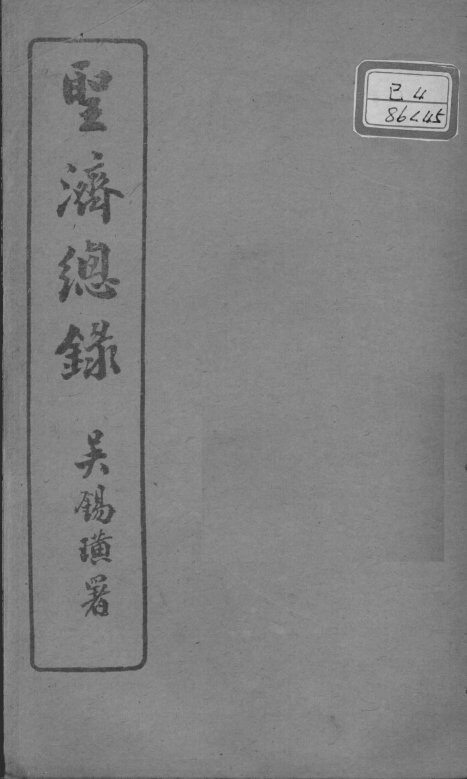 聖濟總錄
吳錫璜署
己4
86445